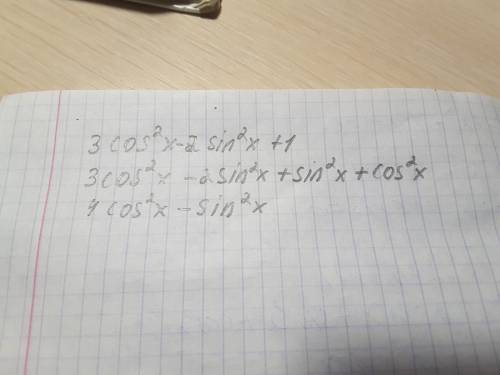 3 cos²x - 2 sin²x + 1
3cos²x - 2sin²x + sin²x + cos²x
4 cos²x - sin²x